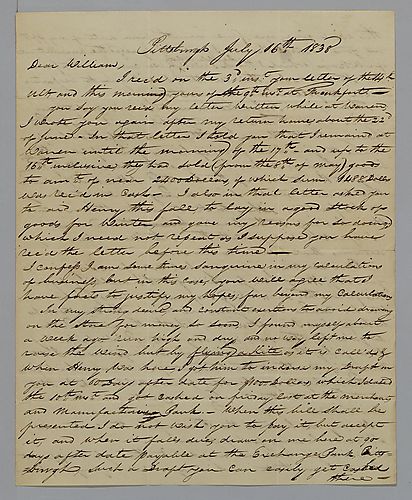 Pittsburgh July 16th 1838
Dear William,
I recd on the 3d inst your letter of the
ult and this morning yours of the 9th inst at Frankfort
you say you recd my letter written while at Warren,
I wrote you again upon my return home about the 22d
of June. In that letter I told you that I remained at
Warren until the morning of the 17th and up to the
16th inclusive they had sold (from the 8th of may) goods
to amt of near 2400 Dollars of which sum $1688 Dollars
was recd in Cash. I also in that letter asked you
to and Henry this fall to lay in a good stock of
goods for and gave my reason for so doing
which I need not repeat as I suppose you have
recd the letter before this time
I confess I am some times sanguine in my calculations
of business, but in this case you will agree that I
have facts to justify my hopes, far beyond my calculation
In my strong desire and constant exertions to avoid drawing
on the Store for money so soon I found myself about
a week ago run high and dry and no way left me to
raise the Wind but by flying a kite as it is called &
When Henry was here I got him to indorse my Draft on
you at 60 Days after date for $900 Dollars which I dated
the 10th inst and got cashed on friday last at the merchants
and Manufacturers Bank - When this bill shall be
presented I do not wish you to pay it, but accept
it, and when it falls due, draw on me here at 90
days after date payable at the Exchange Bank Pitts
burgh Such a Draft you can easily get cashed
there -